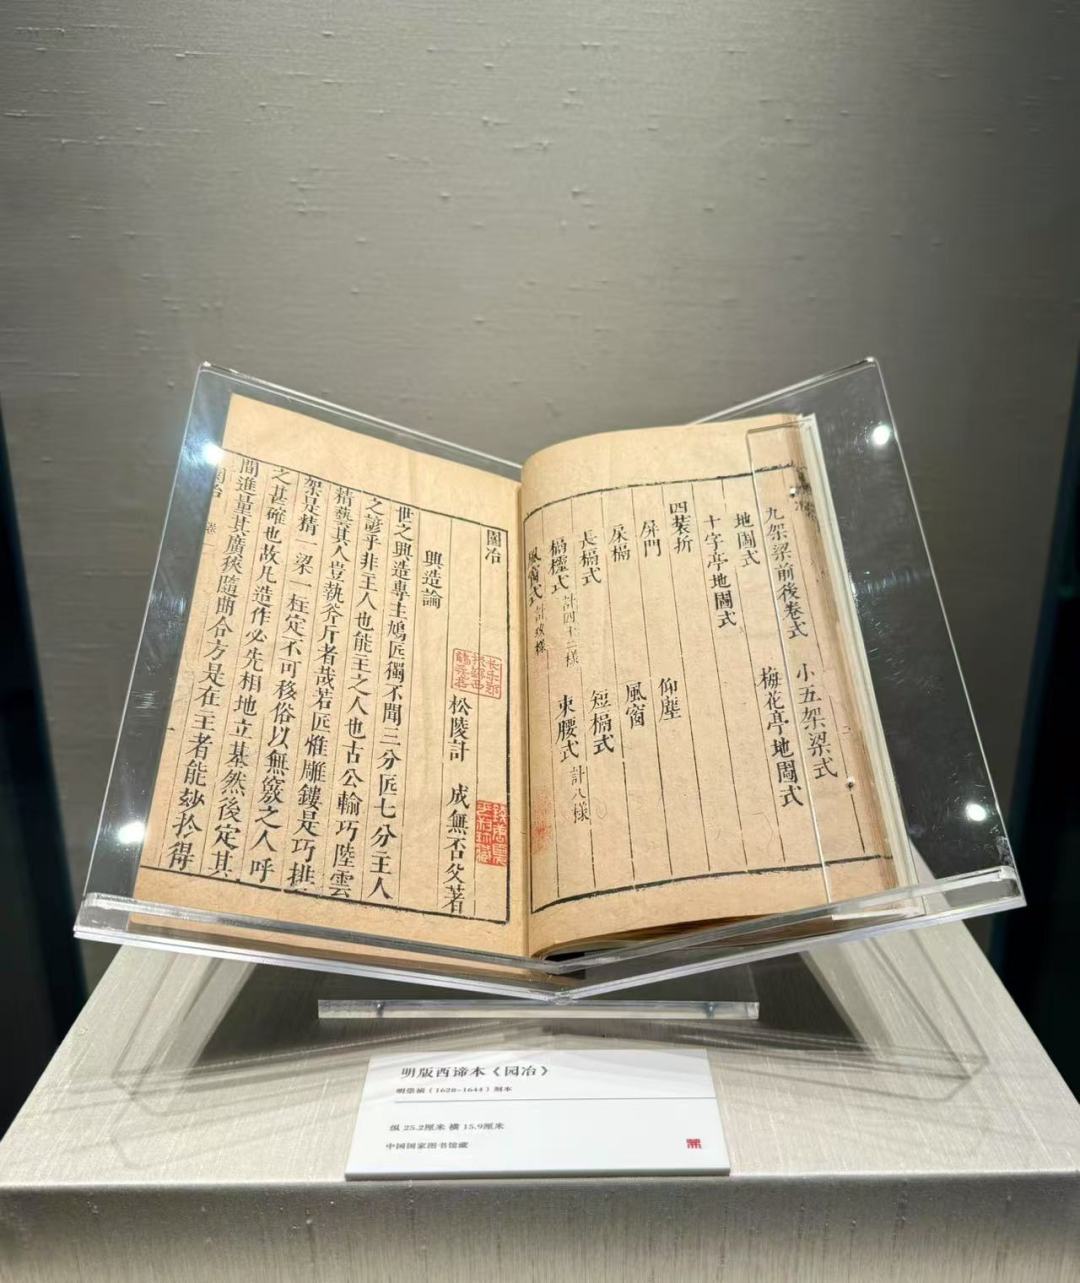 九架梁前後卷式 小五架梁式
地圖式 梅花亭地圖式
十字亭地圖式
四裝折
屏門 仰塵
床槅 風窗
長槅式 短槅式
槅櫺式 計四十三樣 束腰式 計八樣
風窗式 計玖樣
園冶
長樂鄭振鐸西諦藏書
松陵計 成無否父著
興造論
世之興造專主鳩匠獨不聞三分匠七分主人
之諺乎非主人也能主之人也古公輸巧陸雲
精藝其人豈執斧斤者哉若匠惟雕鏤是巧排
架是精一梁一柱定不可移俗以無竅之人呼
之甚確也故凡造作必先相地立基然後定其
間進量其廣狹隨曲合方是在主者能妙於得
園冶 卷一
明版西谛本《园冶》
明崇祯（1628-1644）刻本
纵 25.2厘米 横 15.9厘米
中国国家图书馆藏